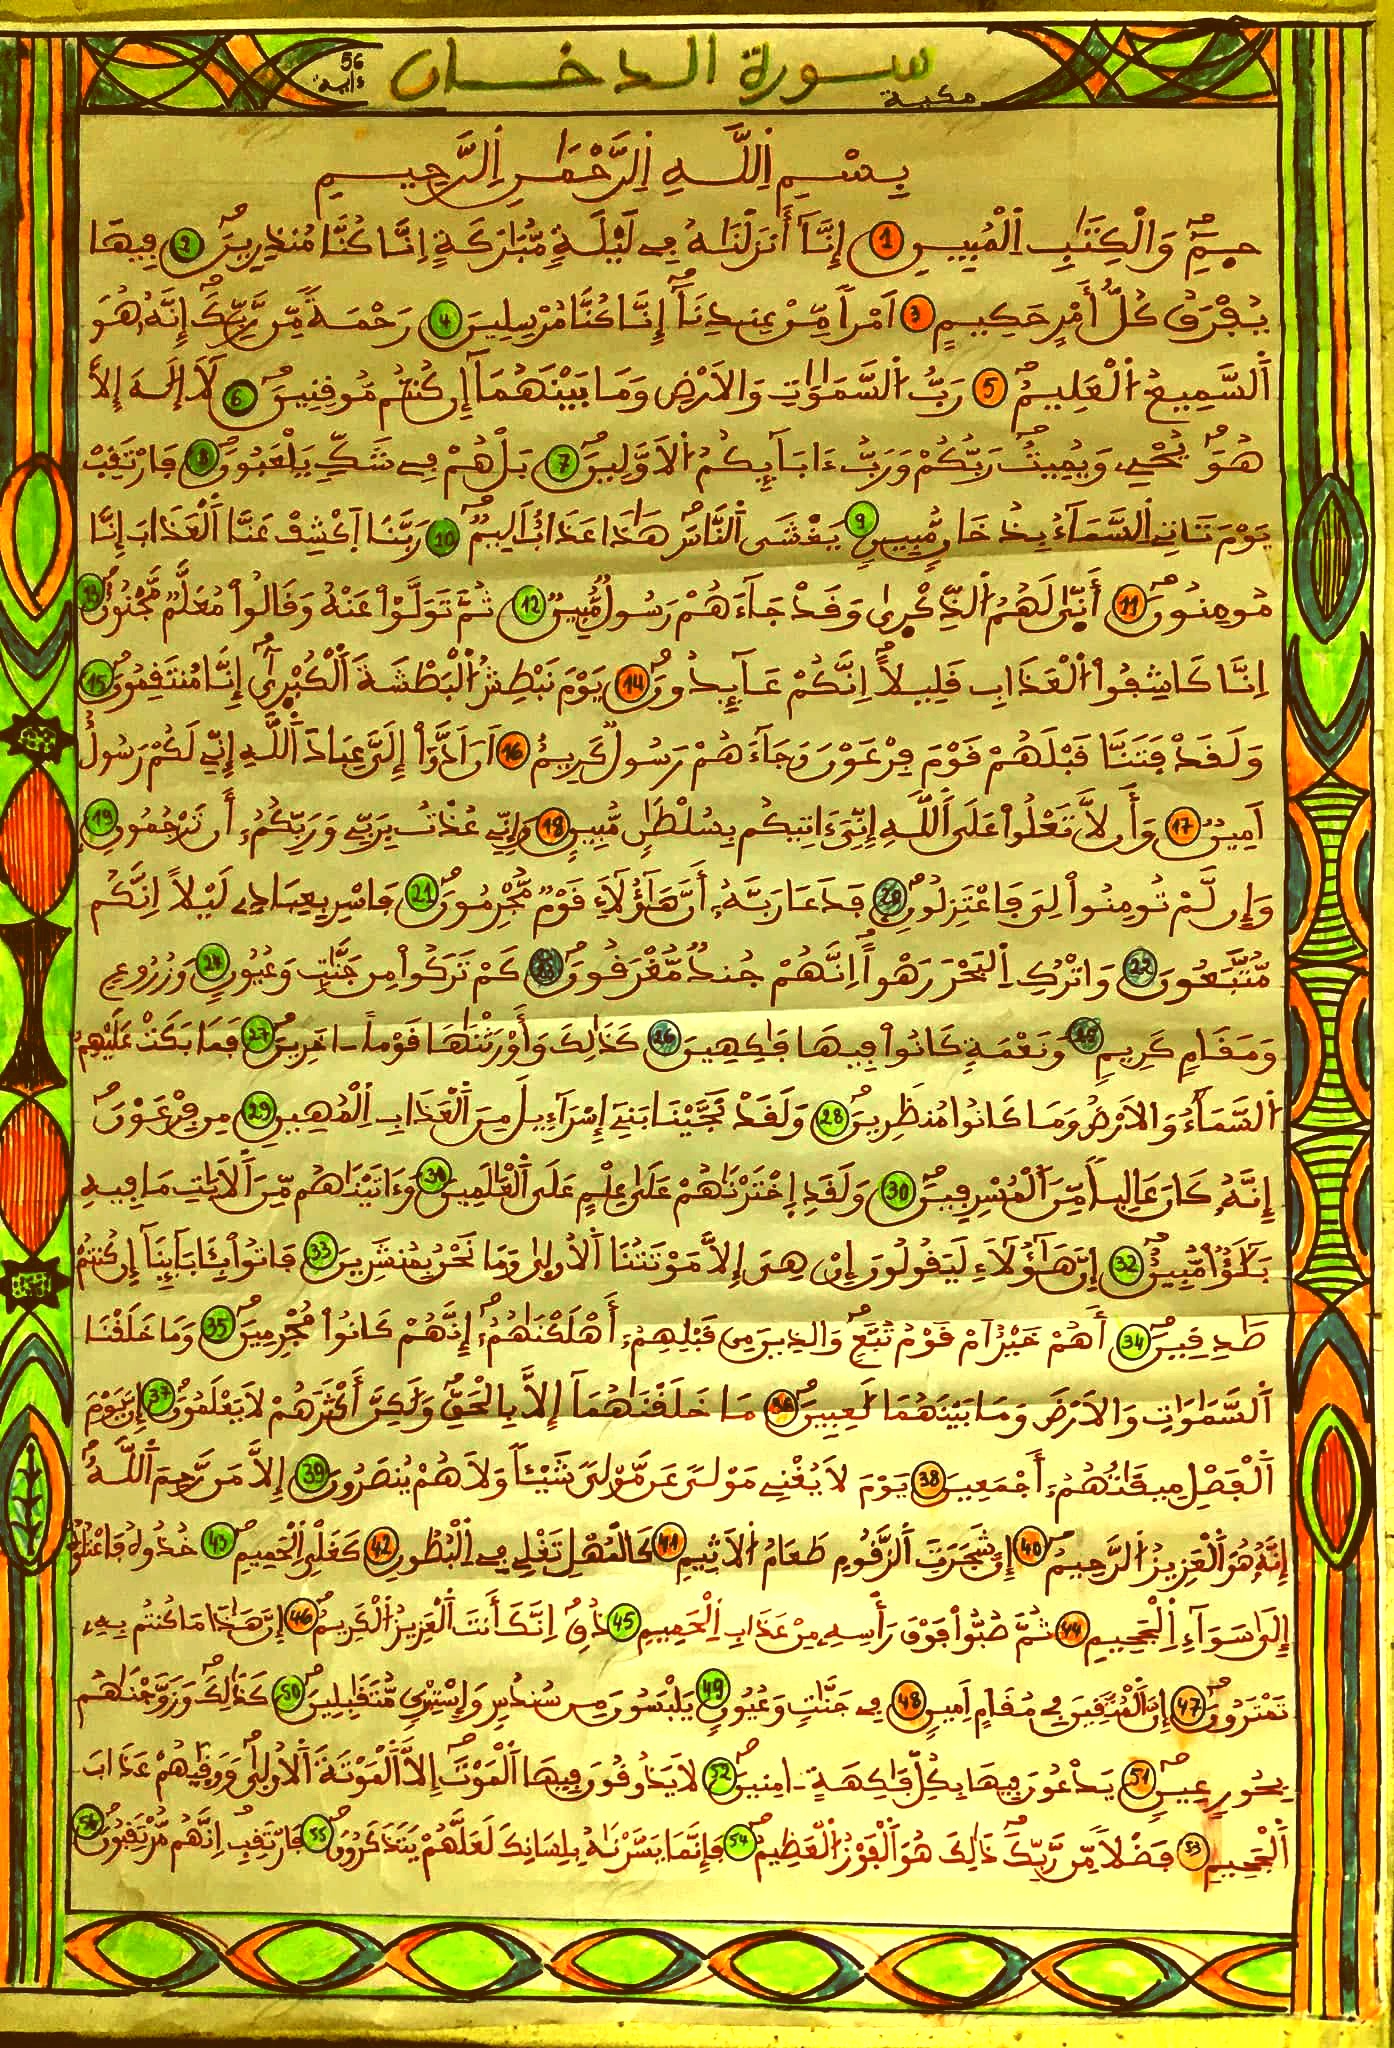 سورة الدخان
مكية
56 ءاية
بِسْمِ اِللَّهِ اِلرَّحْمَٰنِ اِلرَّحِيمِ
حمِ وَالْكِتَٰبِ اِلْمُبِينِ 1 إِنَّآ أَنزَلْنَٰهُ فِي لَيْلَةٍ مُّبَٰرَكَةٍ اِنَّا كُنَّا مُنذِرِينَ 2 فِيهَا
يُفْرَقُ كُلُّ أَمْرٍ حَكِيمٍ 3 اَمْراً مِّنْ عِندِنَآ إِنَّا كُنَّا مُرْسِلِينَ 4 رَحْمَةً مِّن رَّبِّكَ إِنَّهُۥ هُوَ
اَلسَّمِيعُ اُلْعَلِيمُ 5 رَبُّ اُلسَّمَٰوَٰتِ وَالاَرْضِ وَمَا بَيْنَهُمَآ إِن كُنتُم مُّوقِنِينَ 6 لَآ إِلَٰهَ إِلاَّ
هُوَ يُحْيِۦ وَيُمِيتُ رَبُّكُمْ وَرَبُّ ءَابَآئِكُمُ اُلاَوَّلِينَ 7 بَلْ هُمْ فِي شَكٍّ يَلْعَبُونَ 8 فَارْتَقِبْ
يَوْمَ تَاتِي اِلسَّمَآءُ بِدُخَانٍ مُّبِينٍ 9 يَغْشَى اَلنَّاسَ هَٰذَا عَذَابٌ اَلِيمٌ 10 رَبَّنَا اَكْشِفْ عَنَّا اَلْعَذَابَ إِنَّا
مُومِنُونَ 11 أَنَّىٰ لَهُمُ اُلذِّكْرِىٰ وَقَدْ جَآءَهُمْ رَسُولٌ مُّبِينٌ 12 ثُمَّ تَوَلَّوْاْ عَنْهُ وَقَالُواْ مُعَلَّمٌ مَّجْنُونٌ 13
اِنَّا كَاشِفُواْ اُلْعَذَابِ قَلِيلاً اِنَّكُمْ عَآئِدُونَ 14 يَوْمَ نَبْطِشُ اُلْبَطْشَةَ اَلْكُبْرِىٰٓ إِنَّا مُنتَقِمُونَ 15
وَلَقَدْ فَتَنَّا قَبْلَهُمْ قَوْمَ فِرْعَوْنَ وَجَآءَهُمْ رَسُولٌ كَرِيمٌ 16 اَنَ اَدُّوٓاْ إِلَيَّ عِبَادَ اَللَّهِ إِنِّي لَكُمْ رَسُولٌ
اَمِينٌ 17 وَأَن لاَّ تَعْلُواْ عَلَى اَللَّهِ إِنِّيَ ءَاتِيكُم بِسُلْطَٰنٍ مُّبِينٍ 18 وَإِنِّي عُذْتُ بِرَبِّي وَرَبِّكُمُۥٓ أَن تَرْجُمُونِ 19
وَإِن لَّمْ تُومِنُواْ لِيَ فَاعْتَزِلُونِ 20 فَدَعَا رَبَّهُۥٓ أَنَّ هَٰٓؤُلَآءِ قَوْمٌ مُّجْرِمُونَ 21 فَاسْرِ بِعِبَادِي لَيْلاً اِنَّكُم
مُّتَّبَعُونَ 22 وَاتْرُكِ اِلْبَحْرَ رَهْواً اِنَّهُمْ جُندٌ مُّغْرَقُونَ 23 كَمْ تَرَكُواْ مِن جَنَّٰتٍ وَعُيُونٍ 24 وَزُرُوعٍ
وَمَقَامٍ كَرِيمٍ 25 وَنَعْمَةٍ كَانُواْ فِيهَا فَٰكِهِينَ 26 كَذَٰلِكَ وَأَوْرَثْنَٰهَا قَوْماً ـ اخَرِينَ 27 فَمَا بَكَتْ عَلَيْهِمُ
اُلسَّمَآءُ وَالاَرْضُ وَمَا كَانُواْ مُنظَرِينَ 28 وَلَقَدْ نَجَّيْنَا بَنِيٓ إِسْرَآءِيلَ مِنَ اَلْعَذَابِ اِلْمُهِينِ 29 مِن فِرْعَوْنَ
إِنَّهُۥ كَانَ عَالِياً مِّنَ اَلْمُسْرِفِينَ 30 وَلَقَدِ اِخْتَرْنَٰهُمْ عَلَىٰ عِلْمٍ عَلَى اَلْعَٰلَمِينَ وَءَاتَيْنَٰهُم مِّنَ اَلاَيَٰتِ مَا فِيهِ
بَلَٰٓؤٌاْ مُّبِينٌ 32 إِنَّ هَٰٓؤُلَآءِ لَيَقُولُونَ إِنْ هِيَ إِلاَّ مَوْتَتُنَا اَلاُولىٰ وَمَا نَحْنُ بِمُنشَرِينَ 33 فَاتُواْ بِـَٔابَآئِنَآ إِن كُنتُمْ
صَٰدِقِينَ 34 أَهُمْ خَيْرٌ اَمْ قَوْمُ تُبَّعٍ وَالذِينَ مِن قَبْلِهِمُۥٓ أَهْلَكْنَٰهُمُۥٓ إِنَّهُمْ كَانُواْ مُجْرِمِينَ 35 وَمَا خَلَقْنَا
اَلسَّمَٰوَٰتِ وَالاَرْضَ وَمَا بَيْنَهُمَا لَٰعِبِينَ 36 مَا خَلَقْنَٰهُمَآ إِلاَّ بِالْحَقِّ وَلَٰكِنَّ أَكْثَرَهُمْ لاَ يَعْلَمُونَ 37 إِنَّ يَوْمَ
اَلْفَصْلِ مِيقَٰتُهُمُۥٓ أَجْمَعِينَ 38 يَوْمَ لاَ يُغْنِي مَوْلىً عَن مَّوْلىً شَيْـٔاً وَلاَ هُمْ يُنصَرُونَ 39 إِلاَّ مَن رَّحِمَ اَللَّهُ
إِنَّهُۥ هُوَ اَلْعَزِيزُ اُلرَّحِيمُ 40 إِنَّ شَجَرَتَ اَلزَّقُّومِ طَعَامُ اُلاَثِيمِ 41 كَالْمُهْلِ تَغْلِي فِي اِلْبُطُونِ 42 كَغَلْيِ اِلْحَمِيمِ 43 خُذُوهُ فَاعْتُلُوهُ
إِلَىٰ سَوَآءِ اِلْجَحِيمِ 44 ثُمَّ صُبُّواْ فَوْقَ رَأْسِهِۦ مِنْ عَذَابِ اِلْحَمِيمِ 45 ذُقِ اِنَّكَ أَنتَ اَلْعَزِيزُ اُلْكَرِيمُ 46 إِنَّ هَٰذَا مَا كُنتُم بِهِۦ
تَمْتَرُونَ 47 إِنَّ اَلْمُتَّقِينَ فِي مُقَامٍ اَمِينٍ 48 فِي جَنَّٰتٍ وَعُيُونٍ 49 يَلْبَسُونَ مِن سُندُسٍ وَإِسْتَبْرَقٍ مُّتَقَٰبِلِينَ 50 كَذَٰلِكَ وَزَوَّجْنَٰهُم
بِحُورٍ عِينٍ 51 يَدْعُونَ فِيهَا بِكُلِّ فَٰكِهَةٍ ـ امِنِينَ 52 لاَ يَذُوقُونَ فِيهَا اَلْمَوْتَ إِلاَّ اَلْمَوْتَةَ اَلاُولىٰ وَوَقِيٰهُمْ عَذَابَ
اَلْجَحِيمِ 53 فَضْلاً مِّن رَّبِّكَ ذَٰلِكَ هُوَ اَلْفَوْزُ اُلْعَظِيمُ 54 فَإِنَّمَا يَسَّرْنَٰهُ بِلِسَانِكَ لَعَلَّهُمْ يَتَذَكَّرُونَ 55 فَارْتَقِبِ اِنَّهُم مُّرْتَقِبُونَ 56